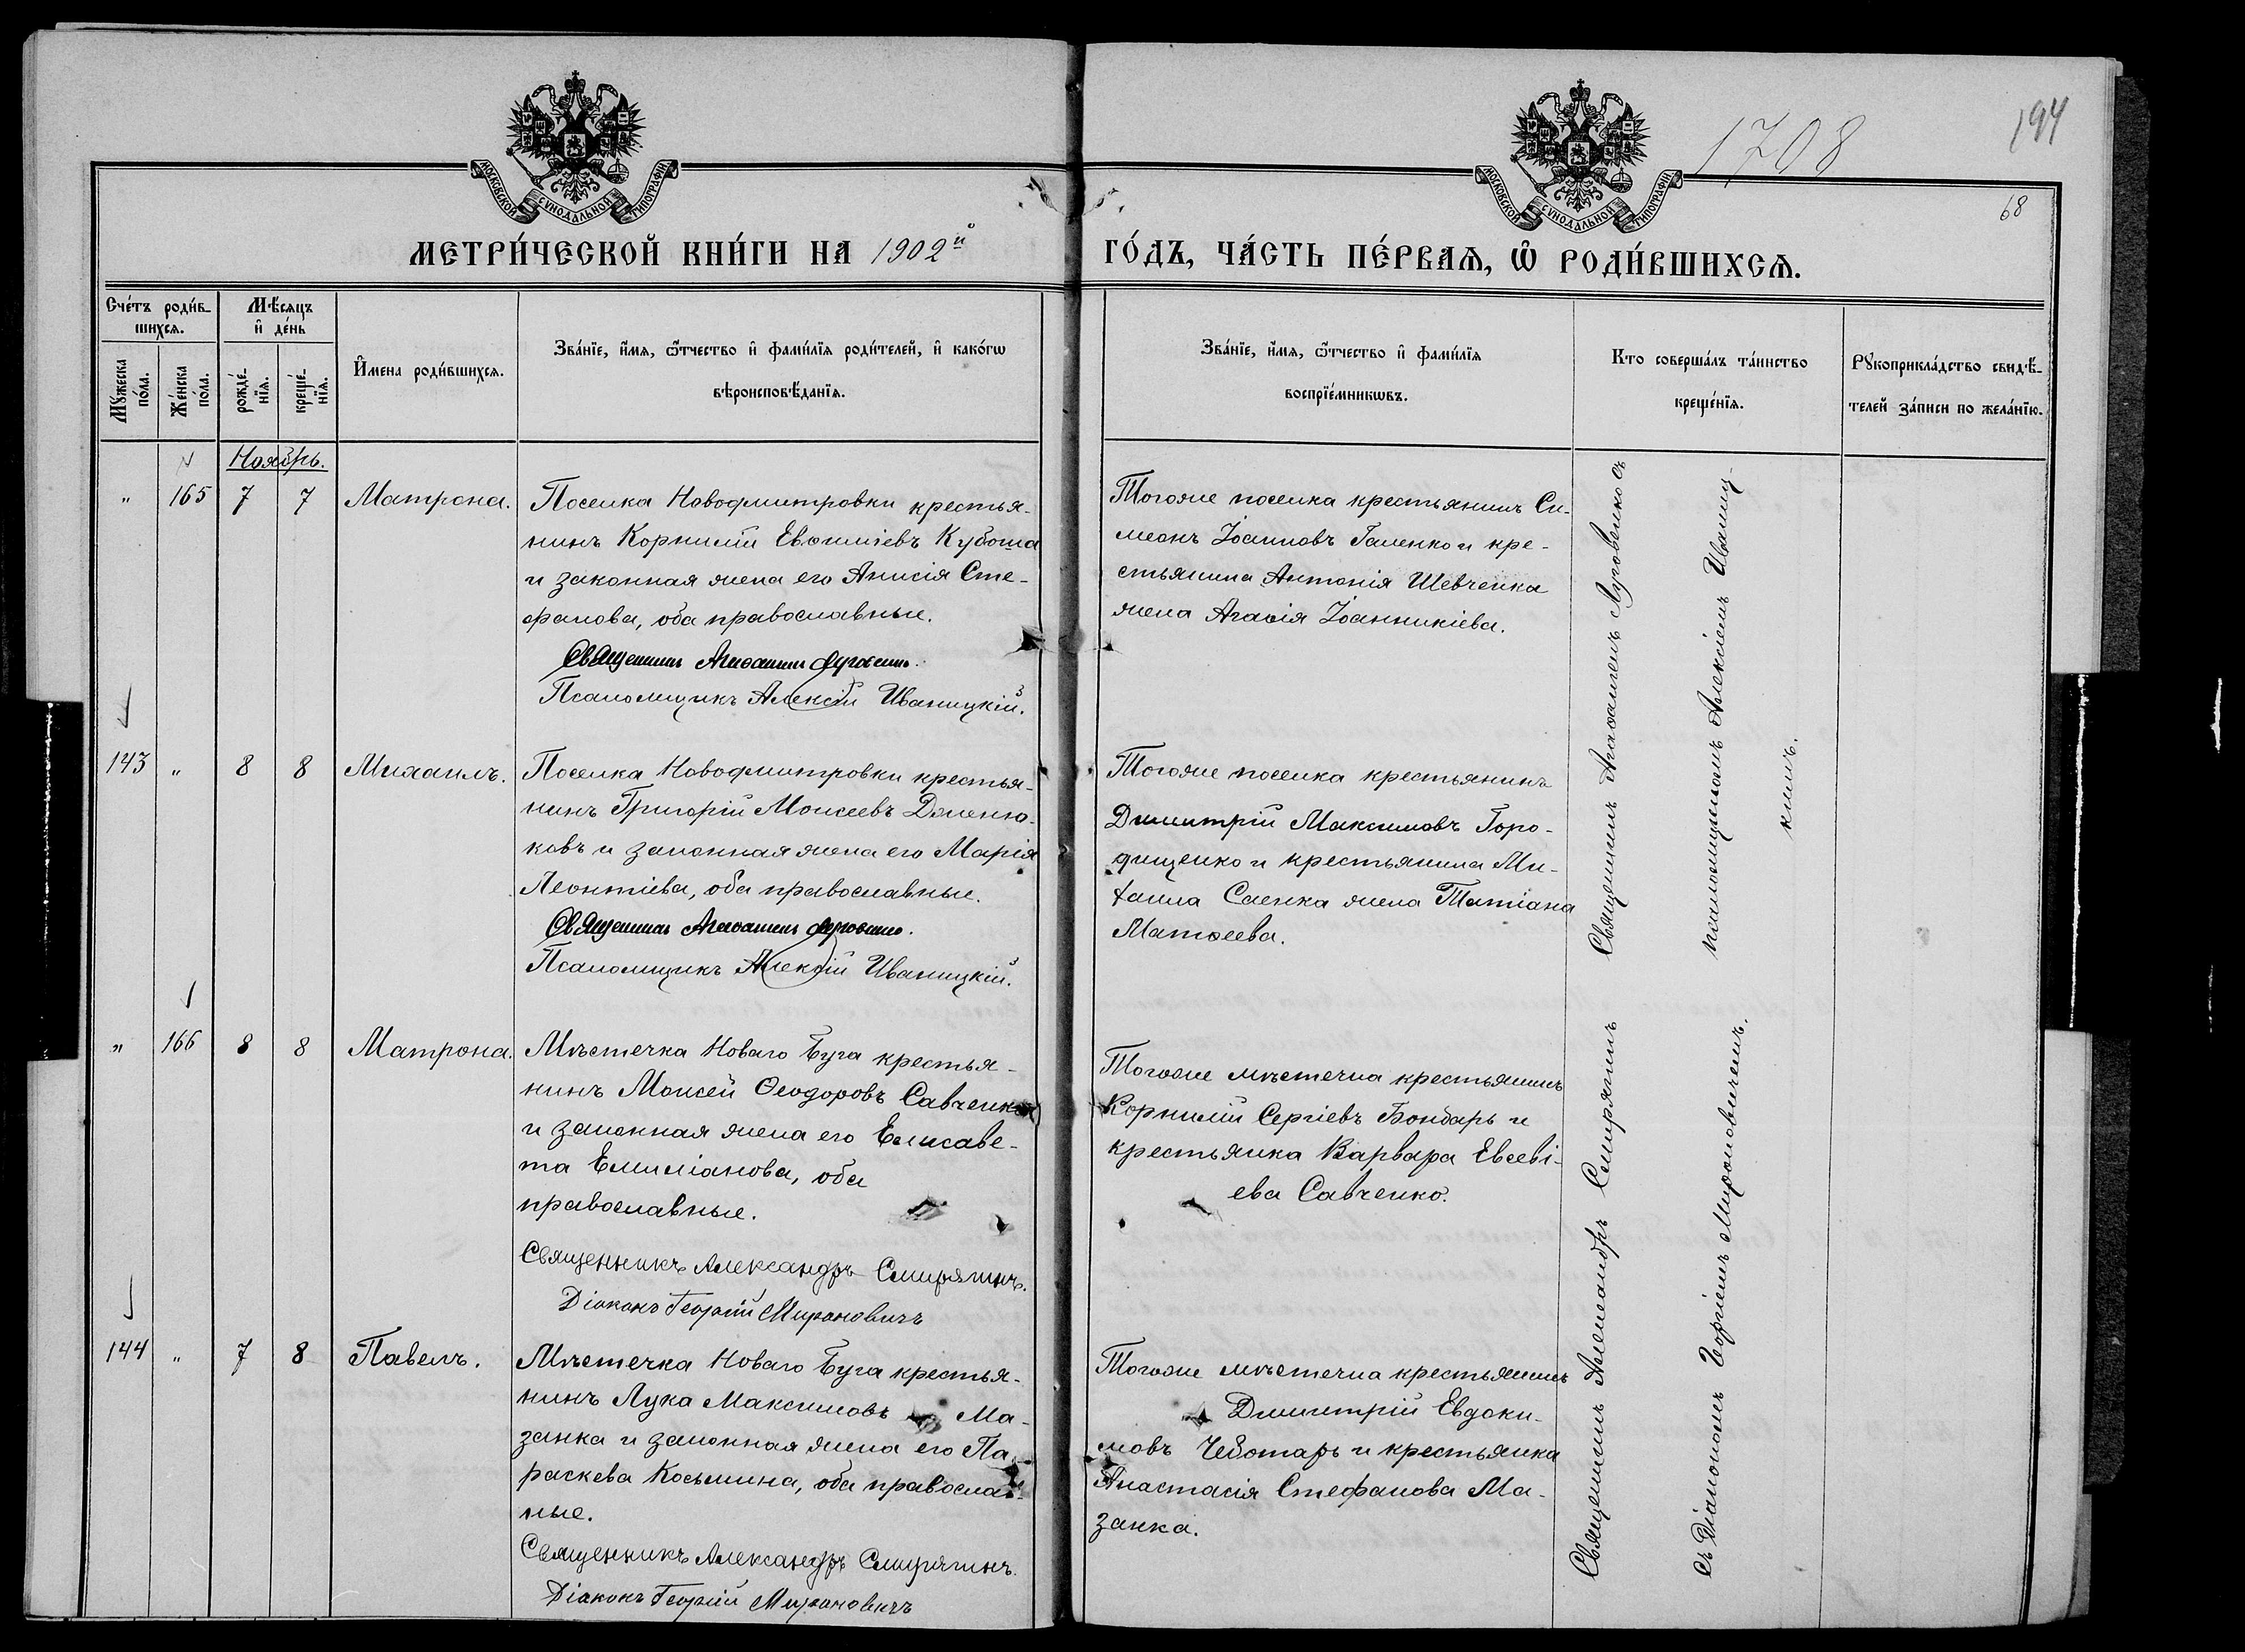 1708
194
68
МОСКОВСКОЙ СѴНОДАЛЬНОЙ ТИПОГРАФІИ
МОСКОВСКОЙ СѴНОДАЛЬНОЙ ТИПОГРАФІИ
МЕТРИ́ЧЕСКОЙ КНИ́ГИ НА 1902й
ГО́ДЪ, ЧА́СТЬ ПЕ́РВАѦ, Ѽ РОДИ́ВШИХСѦ.
Сче́тъ роди́в-
шихсѧ.
Мꙋ́жеска по́ла.
Же́нска по́ла.
Мѣ́сѧцъ
и҆ де́нь
рожде́-
нїѧ.
креще́-
нїѧ.
И҆́мена роди́вшихсѧ.
Зва́нїе, и҆́мѧ, ѻ҆́тчество и҆ фами́лїѧ роди́телей, и҆ како́гѡ
вѣроисповѣ́данїѧ.
Зва́нїе, и҆́мѧ, ѻ҆́тчество и҆ фами́лїѧ
воспрїе́мникѡвъ.
Кто соверша́лъ та́инство
креще́нїѧ.
Рꙋкоприкла́дство свидѣ́-
телей за́писи по жела́нїю.
Ноябрь.
" 165 7 7 Матрона.
Поселка Новодмитровки крестья-
нинъ Корнилій Евѳиміевъ Кубоша
и законная жена его Анисія Сте-
фанова, оба православные.
Священникъ Агаѳангелъ Луговенко.
Псаломщикъ Алексій Иваницкій.
Тогоже поселка крестьянинъ Си-
меонъ Іоанновъ Галенко и кре-
стьянина Антонія Шевченка
жена Агаѳія Іоанникіева.
143 " 8 8 Михаилъ.
Поселка Новодмитровки крестья-
нинъ Григорій Моисеевъ Дженю-
ковъ и законная жена его Марія
Леонтіева, оба православные.
Священникъ Агаѳангелъ Луговенко.
Псаломщикъ Алексій Иваницкій.
Тогоже поселка крестьянинъ
Димитрій Максимовъ Горо-
дищенко и крестьянина Ми-
хаила Саенка жена Татіана
Матѳеева.
Священникъ Агаѳангелъ Луговенко съ
псаломщикомъ Алексіемъ Иваниц-
кимъ.
" 166 8 8 Матрона.
Мѣстечка Новаго Буга крестья-
нинъ Моисей Ѳеодоровъ Савченко
и законная жена его Елисаве-
та Емиліанова, оба
православные.
Священникъ Александръ Смирягинъ.
Діаконъ Георгій Мироновичъ
Тогоже мѣстечка крестьянинъ
Корнилій Сергіевъ Бондарь и
крестьянка Варвара Евсеві-
ева Савченко.
144 " 7 8 Павелъ.
Мѣстечка Новаго Буга крестья-
нинъ Лука Максимовъ Ма-
занка и законная жена его Па-
раскева Косьмина, оба православ-
ные.
Священникъ Александръ Смирягинъ.
Діаконъ Георгій Мироновичъ
Тогоже мѣстечка крестьянинъ
Димитрій Евдоки-
мовъ Чеботарь и крестьянка
Анастасія Стефанова Ма-
занка.
Священникъ Александръ Смирягинъ
съ Діакономъ Георгіемъ Мироновичемъ.